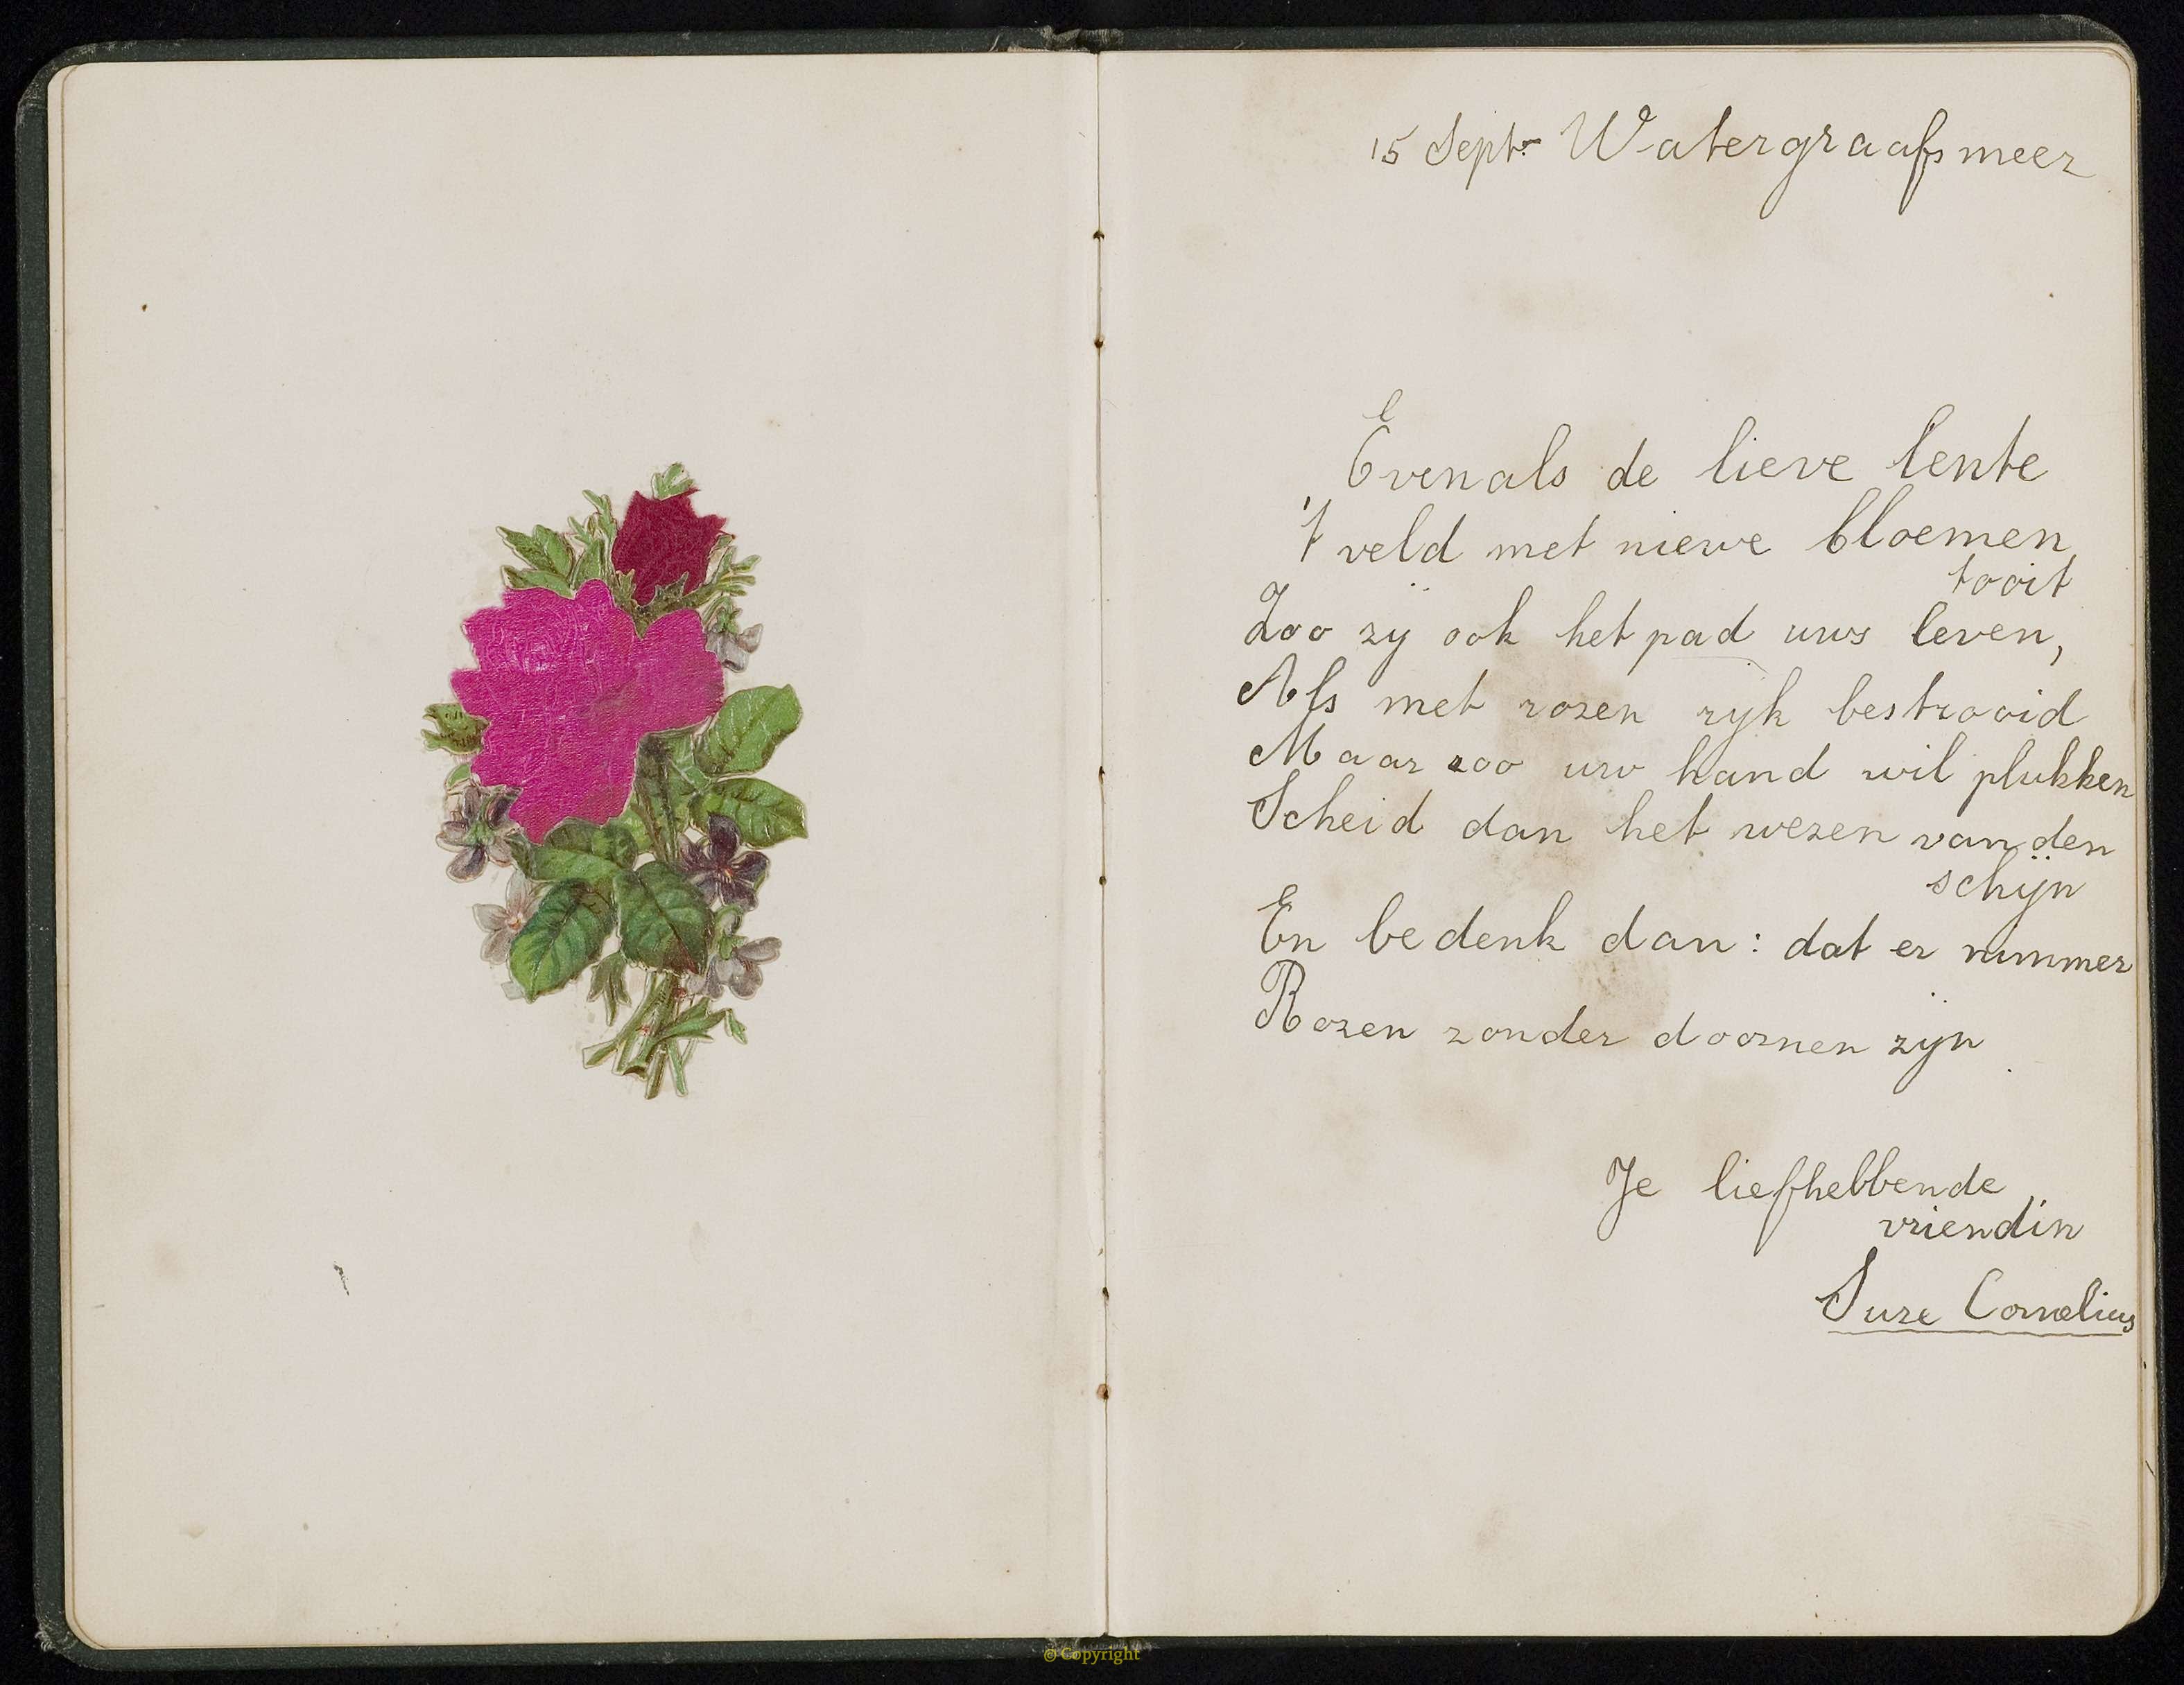 15 Sept. Watergraafsmeer
Evenals de lieve lente
't veld met niewe bloemen
tooit
Zoo zij ook het pad uws leven,
Als met rozen rijk bestrooid
Maar zoo uw hand wil plukken
Scheid dan het wezen van den
schijn
En bedenk dan: dat er nimmer
Rozen zonder doornen zijn
Je liefhebbende
vriendin
Suze Cornelius
© Copyright